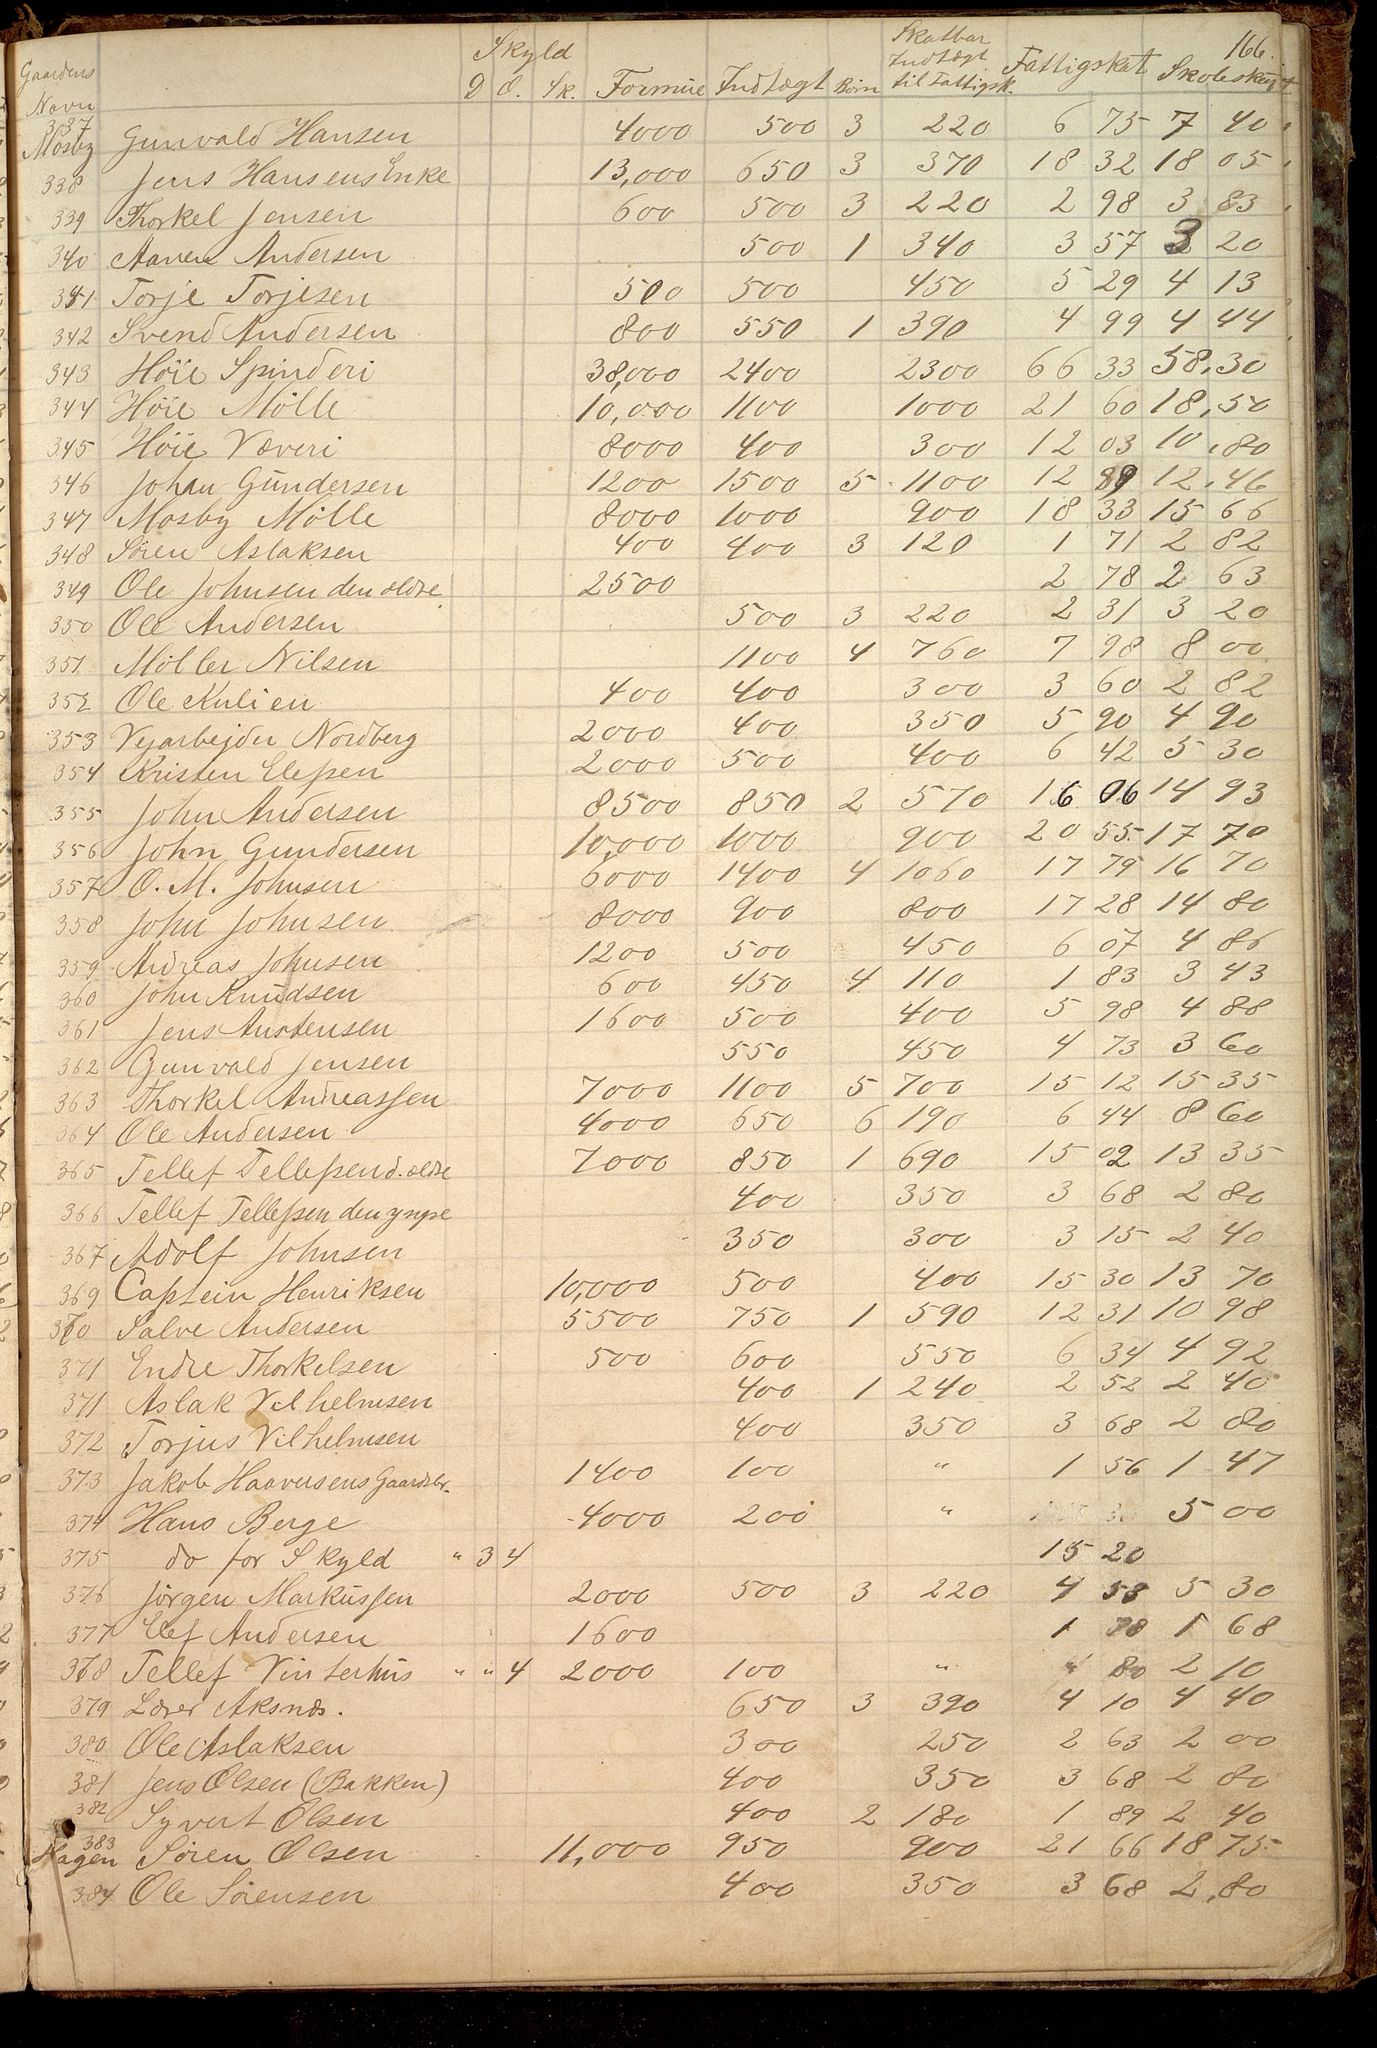 166.
Gaardens Navn Skyld D. O. Sk. Formue Indtægt Børn Skatbar Indtægt til Fattigsk. Fattigskat Skoleskat
337 Mosby Gunvald Hansen 4000 500 3 220 6 75 7 40
338 Jens Hansens Enke 13,000 650 3 370 18 32 18 05
339 Thorkel Jensen 600 500 3 220 2 98 3 83
340 Aanen Andersen 500 1 340 3 57 3 20
341 Torje Torjesen 500 500 450 5 29 4 13
342 Svend Andersen 800 550 1 390 4 99 4 44
343 Höie Spinderi 38,000 2400 2300 66 33 58,30
344 Höie Mölle 10,000 1100 1000 21 60 18,50
345 Höie Væveri 8000 400 300 12 03 10,80
346 Johan Gundersen 1200 1500 5 1100 12 89 12,46
347 Mosby Mölle 8000 1000 900 18 33 15 66
348 Sören Aslaksen 400 400 3 120 1 71 2 82
349 Ole Johnsen den ældre 2500 2 78 2 63
350 Ole Andersen 500 3 220 2 31 3 20
351 Möller Nilsen 1100 4 760 7 98 8 00
352 Ole Kulien 400 400 300 3 60 2 82
353 Vejarbejder Nordberg 2000 400 350 5 90 4 90
354 Kristen Elefsen 2000 500 400 6 42 5 30
355 John Andersen 8500 850 2 570 16 06 14 93
356 John Gundersen 10,000 1000 900 20 55 17 70
357 O. M. Johnsen 6000 1400 4 1060 17 79 16 70
358 John Johnsen 8000 900 800 17 28 14 80
359 Andreas Johnsen 1200 500 450 6 07 4 86
360 John Knudsen 600 450 4 110 1 83 3 43
361 Jens Austensen 1600 500 400 5 98 4 88
362 Gunvald Jensen 550 450 4 73 3 60
363 Thorkel Andreassen 7000 1100 5 700 15 12 15 35
364 Ole Andersen 4000 650 6 190 6 44 8 60
365 Tellef Tellefsen d. ældre 7000 850 1 690 15 02 13 35
366 Tellef Tellefsen den yngre 400 350 3 68 2 80
367 Adolf Johnsen 350 300 3 15 2 40
369 Captein Henriksen 10,000 500 400 15 30 13 70
370 Salve Andersen 5500 750 1 590 12 31 10 98
371 Endre Thorkelsen 500 600 550 6 34 4 92
371 Aslak Vilhelmsen 400 1 240 2 52 2 40
372 Torjus Vilhelmsen 400 350 3 68 2 80
373 Jakob Haaversens Gaardbr. 1400 100 " 1 56 1 47
374 Hans Berge 4000 200 " 5 00
375 do for Skyld " 3 4 15 20
376 Jörgen Markussen 2000 500 3 220 4 53 5 30
377 Elef Andersen 1600 1 78 1 68
378 Tellef Vinterhus " " 4 2000 100 " " 80 2 10
379 Lærer Aksnæs. 650 3 390 4 10 4 40
380 Ole Aslaksen 300 250 2 63 2 00
381 Jens Olsen (Bakken) 400 350 3 68 2 80
382 Syvert Olsen 400 2 180 1 89 2 40
383 Hagen Sören Olsen 11,000 950 900 21 66 18 75
384 Ole Sörensen 400 350 3 68 2,80